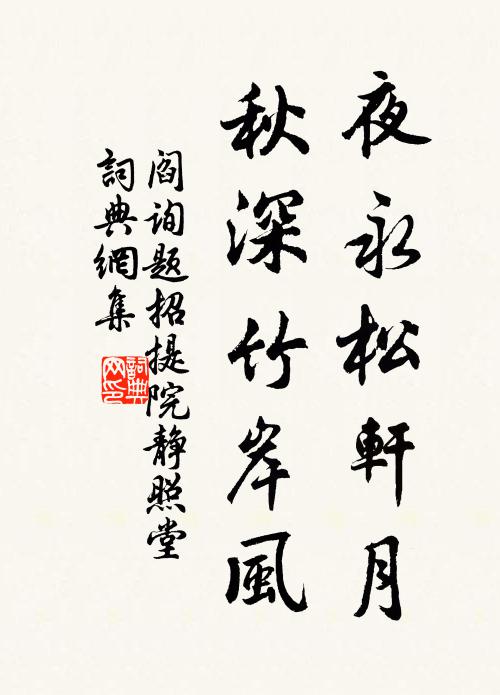 夜永松軒月
秋深竹岸風
閻詢題招提院靜照堂
詞典網集
詞典網印